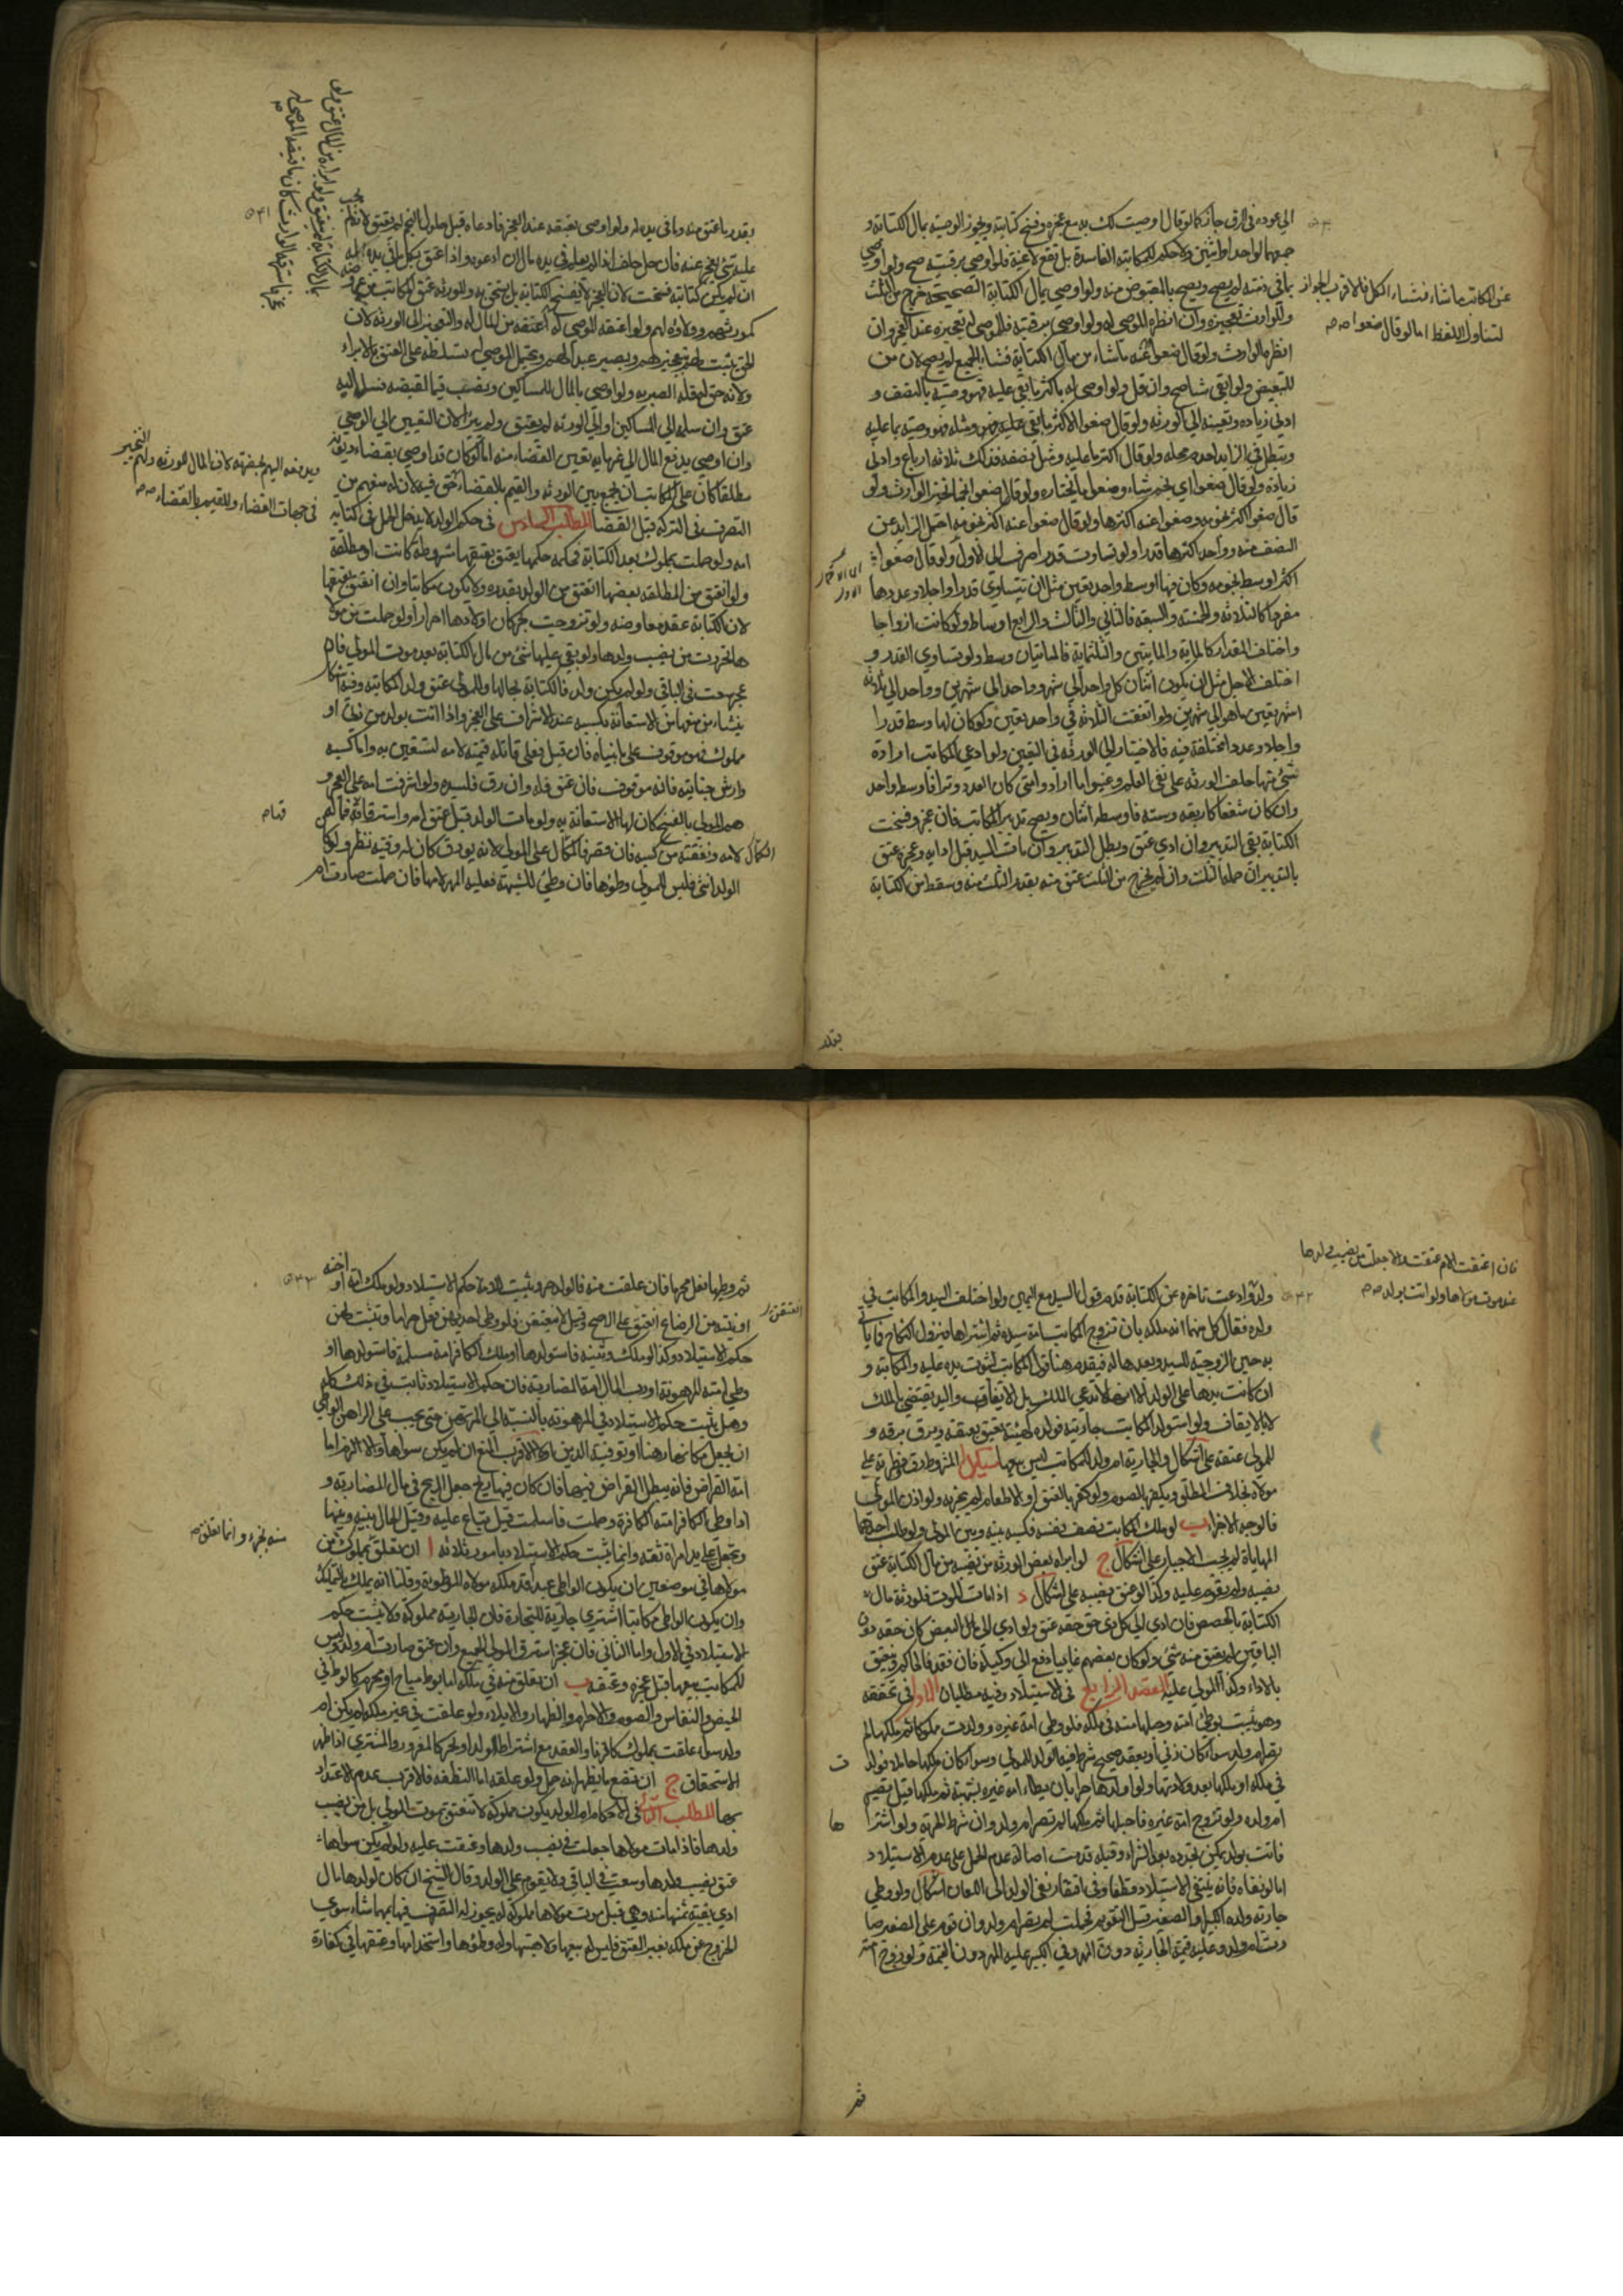 الى عوده فى الرق جاز كما لو قال اوصيت لك به مع عجزه وفسخ كتابته ويجوز الوصية بمال الكتابة و
لواحد او اثنين ولا حكم للكتابة الفاسدة بل تقع لاغية فلو اوصى برقبته صح ولو اوصى
بما فى ذمته لم يصح ويصح بالمقبوض منه ولو اوصى بمال الكتابة الصحيحة خرج من الثلث
وللوارث تعجيزه وان انظره الموصى له ولو اوصى برقبته فللموصى له تعجيزه عند العجز وان
انظره الوارث ولو قال ضعوا عنه ما شاء من مال الكتابة فشاء الجميع لم يصح لان من
للتبعيض ولو ابقى شيئا صح وان قل ولو اوصى له باكثر ما بقى عليه فهو وصية بالنصف و
ادنى زيادة وتعيينه الى الورثة ولو قال ضعوا الاكثر مما بقى عليه ومثله فهو وصية بما عليه
ويبطل فى الزايد لعدم محله ولو قال اكثر ما عليه ومثل نصفه فذلك ثلاثة ارباع وادنى
زيادة ولو قال ضعوا اى نجم شاء وضعوا ما يختاره ولو قال ضعوا نجما تخير الوارث ولو
قال ضعوا اكثر نجومه وضعوا عنه اكثرها قدرا ولو قال ضعوا عنه اكثر نجومه احتمل الزايد عن
النصف منه وواحد اكثرها قدرا ولو تساوت قدرا صرف الى الاول ولو قال ضعوا
اوسط نجومه وكان فيها اوسط واحد تعين مثل ان يتساوى قدرا واجلا وعددها
مفردا كالثلاثة والخمسة والسبعة فالثانى والثالث والرابع اوساط ولو كانت ازواجا
واختلف المقدار كالماية والمايتين والثلثماية فالمايتان وسط ولو تساوى القدر و
اختلف الاجل مثل ان يكون اثنان كل واحد الى شهر وواحد الى شهرين وواحد الى ثلاثة
اشهر تعين ما هو الى شهرين ولو اتفقت الثلاثة فى واحد تعين ولو كان لها وسط قدرا
واجلا وعددا مختلفة فيه فالاختيار الى الورثة فى التعيين ولو ادعى المكاتب ارادة
شىء منها حلف الورثة على نفى العلم وعينوا ما ارادوا ومتى كان العدد وترا فاوسطه واحد
وان كان شفعا كاربعة وستة فاوسطه اثنان ويصح تدبير المكاتب فان عجز وفسخت
الكتابة بقى التدبير وان ادى عتق وبطل التدبير وان مات السيد قبل ادايه وعجزه عتق
بالتدبير ان حمله الثلث وان لم يخرج من الثلث عتق منه بقدر الثلث وسقط من الكتابة
عن المكاتب ما شاء فشاء الكل فالاقرب الجواز
لتناول اللفظ اما لو قال ضعوا
بقدر
بقدر ما عتق منه وما فى يده له ولو اوصى بعتقه عند العجز فادعاه قبل حلول النجم لم يعتق
عليه شىء يعجز عنه فان حل حلف
ان لم يكن كتابته فسخت لان العجز لا يفسخ الكتابة بل يستحق به وللورثة عتق المكاتب
كمورثهم وولاؤه لهم ولو اعتقه الموصى له اعتقه من المال له والتعجيز الى الورثة لان
الحق يثبت لهم بتعجيزهم ويصير عبدا لهم ويحتمل الموصى له لتسلطه على العتق بالابراء
ولانه حق له فله الصبر به ولو اوصى بالمال للمساكين ونصب قيما لقبضه فسلم اليه
عتق وان سلم الى المساكين او الى الورثة لم يعتق ولم يبرا لان التعيين الى الوصى
وان اوصى بدفع المال الى غرمايه تعين القضاء منه اما لو كان قد اوصى بقضاء ديونه
مطلقا كان على المكاتب ان يجمع بين الورثة والقيم بالقضاء حق فيه لان له منعهم من
التصرف فى التركة قبل القضا المطلب السادس فى حكم الولد لا يدخل الحمل فى كتابة
امه ولو حملت بمملوك بعد الكتابة فحكمه حكمها ينعتق بعتقها مشروطة كانت او مطلقة
ولو انعتق من المطلقة بعضها انعتق من الولد بقدره ولا يكون مكاتبا وان انعتق بعتقها
لان الكتابة عقد معاوضة ولو تزوجت بحر كان اولادها احرارا ولو حملت من مولا
ها تحررت من نصيب ولدها ولو بقى عليها شىء من مال الكتابة بعد موت المولى فان
عجز سعت فى الباقى ولو لم يكن ولد فالكتابة بحالها وللمولى عتق ولد المكاتبة وفيه اشكال
ينشا من منعها من الاستعانة بكسبه عند الاشراف على العجز واذا اتت بولد من زنى او
مملوك فهو موقوف على ما بيناه فان قتل فعلى قاتله قيمته لامه لتستعين به واما كسبه
وارش جنايته فانه موقوف فان عتق فله وان رق فلسيده ولو اشرفت امه على العجز و
هم المولى بالفسخ كان لها الاستعانة به ولو مات الولد قبل عتق امه واسترقاقه فماله كمن
لامه ونفقته من كسبه فان قصر فاكمال على المولى لانه يودى كان له رقيته نظر ولو كان
الولد انثى فليس للمولى وطؤها فان وطئ للشبهة فعليه المهر لامها فان حملت صارت ام
ويدفعه اليهم بحضرته لان المال للورثة ولهم التخيير
فى جهات القضاء وللقيم بالقضاء
ولد ولو ادعت تاخره عن الكتابة قدم قول السيد مع اليمين ولو اختلف السيد والمكاتب فى
ولده فقال كل منهما انه ملكه بان تزوج المكاتب امة سيده ثم اشتراها فيزول النكاح فاياتى
به حين الزوجية للسيد وبعدها له فيقدم هنا قول المكاتب لثبوت يده عليه والمكاتبة و
ان كانت يدها على الولد الا انها لا تدعى الملك بل الايقاف واليد يقتضى الملك
لا الايقاف ولو استولد المكاتب جاريته فولده كهيئته يعتق بعتقه ويرق برقه و
للمولى عتقه على اشكال والجارية ام ولد للمكاتب ليس بيعها مسايل ا المشروط رق فطرته على
مولاه بخلاف المطلق ويكفر بالصوم ولو كفر بالعتق او الاطعام لم يجزيه ولو اذن المولى
فالوجه الاجزاء ب لو ملك المكاتب نصف نفسه فكسبه بينه وبين المولى ولو طلب احدهما
المهاياة لم يجب الاجبار على اشكال ج لو ابراه بعض الورثة من نصيبه من مال الكتابة عتق
نصيبه ولم يقوم عليه وكذا لو عتق نصيبه على اشكال د اذا مات المورث فلورثته مال
الكتابة بالحصص فان ادى الى كل ذى حق حقه عتق ولو ادى الى البعض كان حقه دون
الباقين لم يعتق منه شىء ولو كان بعضهم غايبا دفع الى وكيله فان فقد فالحاكم وينعتق
بالاداء وكذا المولى عليه المقصد الرابع فى الاستيلاد وفيه مطلبان الاول فى تحققه
وهو يثبت بوطئ امته وحملها منه فى ملكه فلو وطى امة غيره وولدت مملوكا ثم ملكها لم
تصر ام ولد سواء كان زنى او بعقد صحيح شرط فيه الولد للمولى وسواء كان ملكها حاملا فولدت
فى ملكه او ملكها بعد ولادتها ولو اولدها حرا بان يطاء امة غيره بشبهة ثم ملكها قيل تصير
ام ولد ولو تزوج امة غيره فاحبلها ثم ملكها لم تصر ام ولد وان شرط الحرية ولو اشتراها
فاتت بولد يمكن تجدده بعد الشراء وقبله قدمت اصالة عدم الحمل على عدم الاستيلاد
اما لو نفاه فانه ينتفى الاستيلاد قطعا وفى افتقار نفى الولد الى اللعان اشكال ولو وطى
جارية ولده الكبير او الصغير قبل التقويم فحملت لم تصر ام ولد وان قوم على الصغير صا
رت ام ولد وعليه قيمة الجارية دون المهر وفى الكبير عليه المهر دون القيمة ولو زوج امته
فان اعتقت الام عتقت والا جعلت من نصيب ولدها
عند موت مولاها ولو اتت بولد
ثم
ثم وطيها فعل محرما فان علقت منه فالولد حر ويثبت للامة حكم الاستيلاد ولو ملك امه او اخته
او بنته من الرضاع انعتقن على الاصح وقيل لا ينعتقن فلو وطى احديهن فعل حراما وتثبت لهن
حكم الاستيلاد وكذا لو ملك وثنية فاستولدها او ملك الكافر امة مسلمة فاستولدها او
وطى امته المرهونة او رب المال امة المضاربة فان حكم الاستيلاد ثابت فى ذلك كله
وهل يثبت حكم الاستيلاد فى المرهونة بالنسبة الى المرتهن حتى يجب على الراهن الواطى
ان يجعل مكانها رهنا او توفية الدين ام لا الاقرب المنع ان لم يكن سواها والا الزم اما
امة القراض فانه يبطل القراض فيها فان كان فيها ربح جعل الربح فى مال المضاربة و
اذا وطى الكافر امته الكافرة وحملت فاسلمت قيل تباع عليه وقيل يحال بينه وبينها
وتجعل على يد امراة ثقة وانما يثبت حكم الاستيلاد بامور ثلاثة ا ان تعلق بمملوك من
مولاها فى موضعين ان يكون الواطى عبدا قد ملكه مولاه الموطوءة وقلنا انه يملك بالتمليك
وان يكون الواطى مكاتبا اشترى جارية للتجارة فان الجارية مملوكة ولا يثبت حكم
الاستيلاد فى الاول واما الثانى فان عجز استرق المولى الجميع وان عتق صارت ام ولد وليس
للمكاتب بيعها قبل عجزه وعتقه ب ان تعلق منه فى ملكه اما بوطئ مباح او محرم كالوطى فى
الحيض والنفاس والصوم والاحرام والظهار والايلاء ولو علقت فى غير ملكه لم يكن ام
ولد سواء علقت بمملوك كالزنا والعقد مع اشتراط الولد او بحر كالمغرور والمشترى اذا ظهر
الاستحقاق ج ان تضع ما يظهر انه حمل ولو علقة اما النطفة فالاقرب عدم الاعتداد
بها المطلب الثانى فى الاحكام ام الولد يكون مملوكة لا تنعتق بموت المولى بل من نصيب
ولدها فاذا مات مولاها جعلت فى نصيب ولدها وعتقت عليه ولو لم يكن سواها
عتق نصيب ولدها وسعت فى الباقى ولا يقوم على الولد وقال الشيخ ان كان لولدها مال
ادى بقية ثمنها منه وهى قبل موت مولاها مملوكة له يجوز له التصرف فيها بمهما شاء سوى
الخروج عن ملكه بغير العتق فليس له بيعها ولا هبتها وله وطؤها واستخدامها وعتقها فى كفارة
منه بحر وانما تعلق